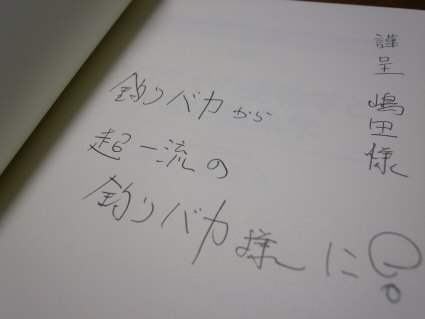 謹呈 嶋田様
釣りバカから
起一流の
釣りバカ様に?